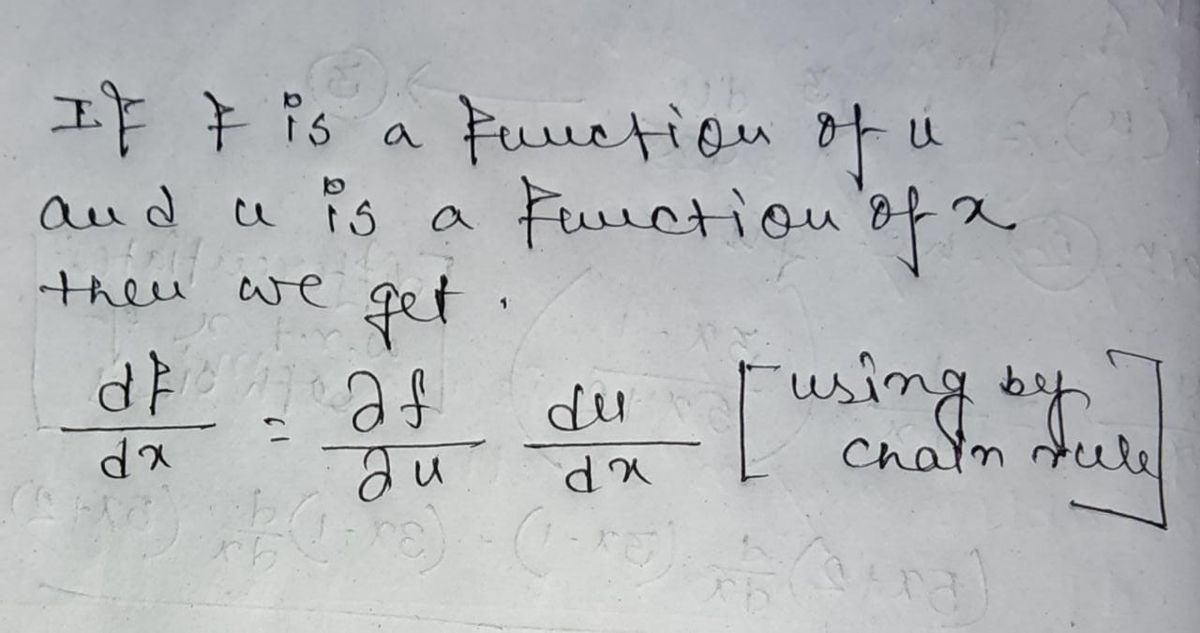 If f is a function of u
and u is a function of x
then we get.
df/dx = ∂f/∂u du/dx [using by chain rule]